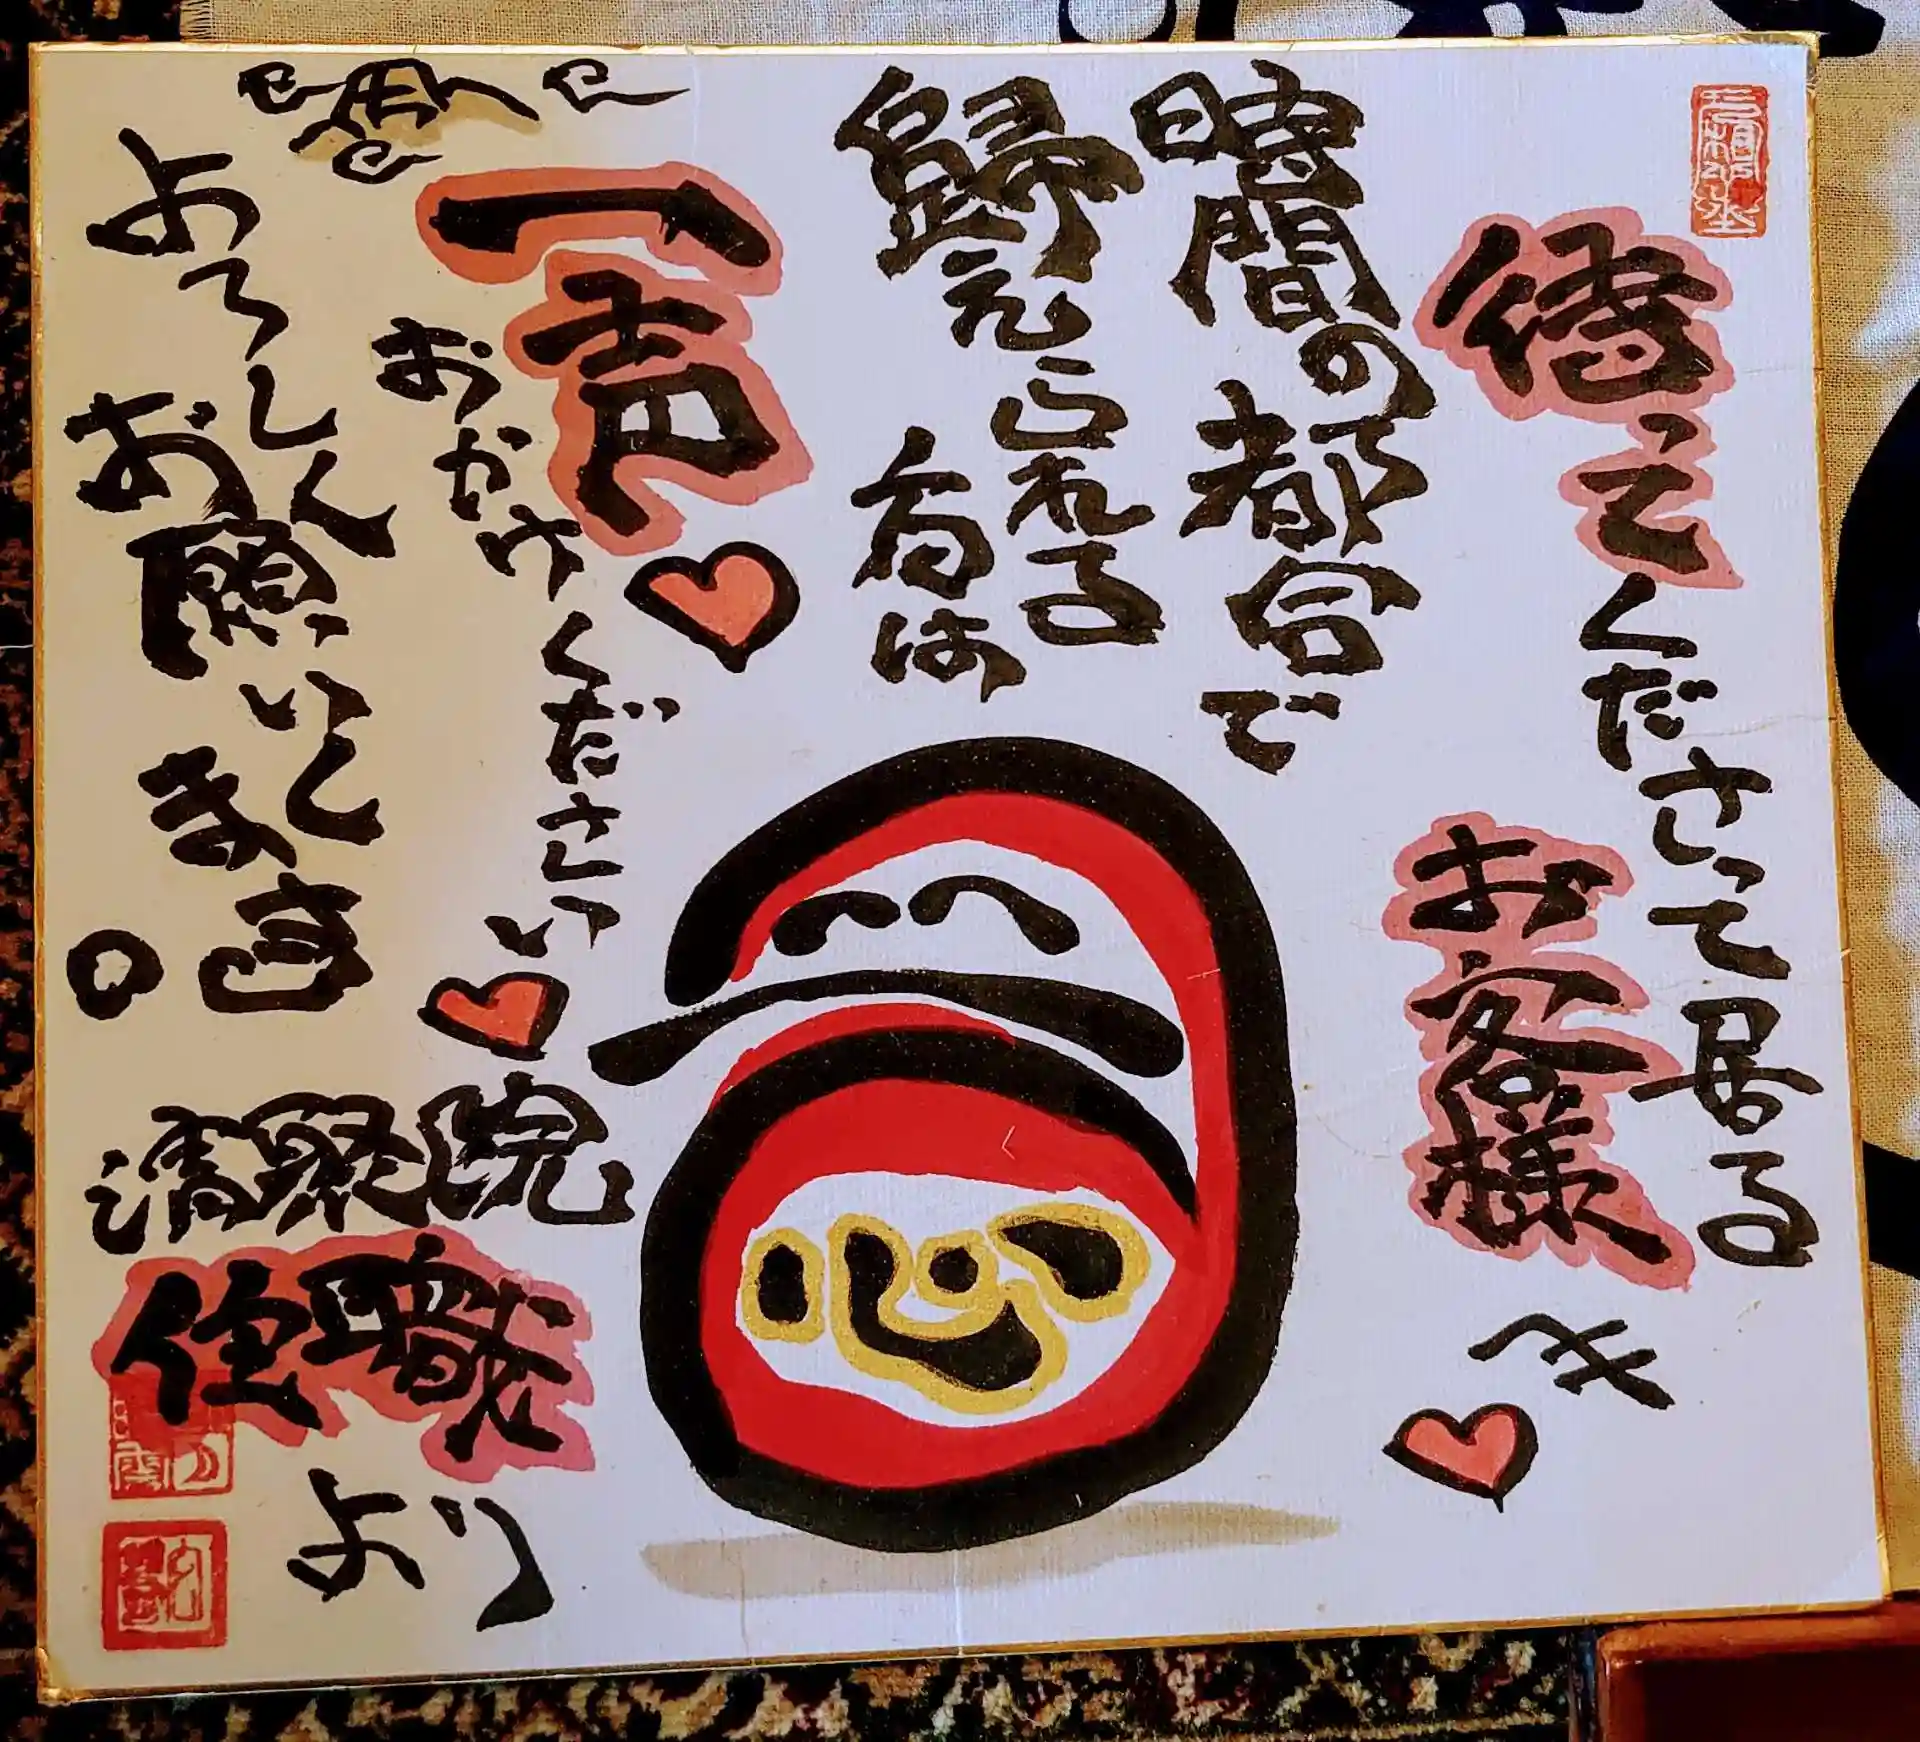 待って
くださって居る
お客様へ
時間の都合で
歸えられる
方は
一声
おかけください
よろしくん
お願いし
ます。
清聚院
住職
より
心